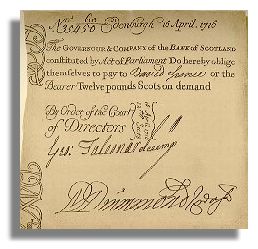 Edenburgh 16 April. 1716
The Governour & Company of the Bank of Scotland
constituted by Act of Parliament Do hereby oblige
themselves to pay to David Spence or the
Bearer Twelve pounds Scots on demand
By Order of the Court
of Directors